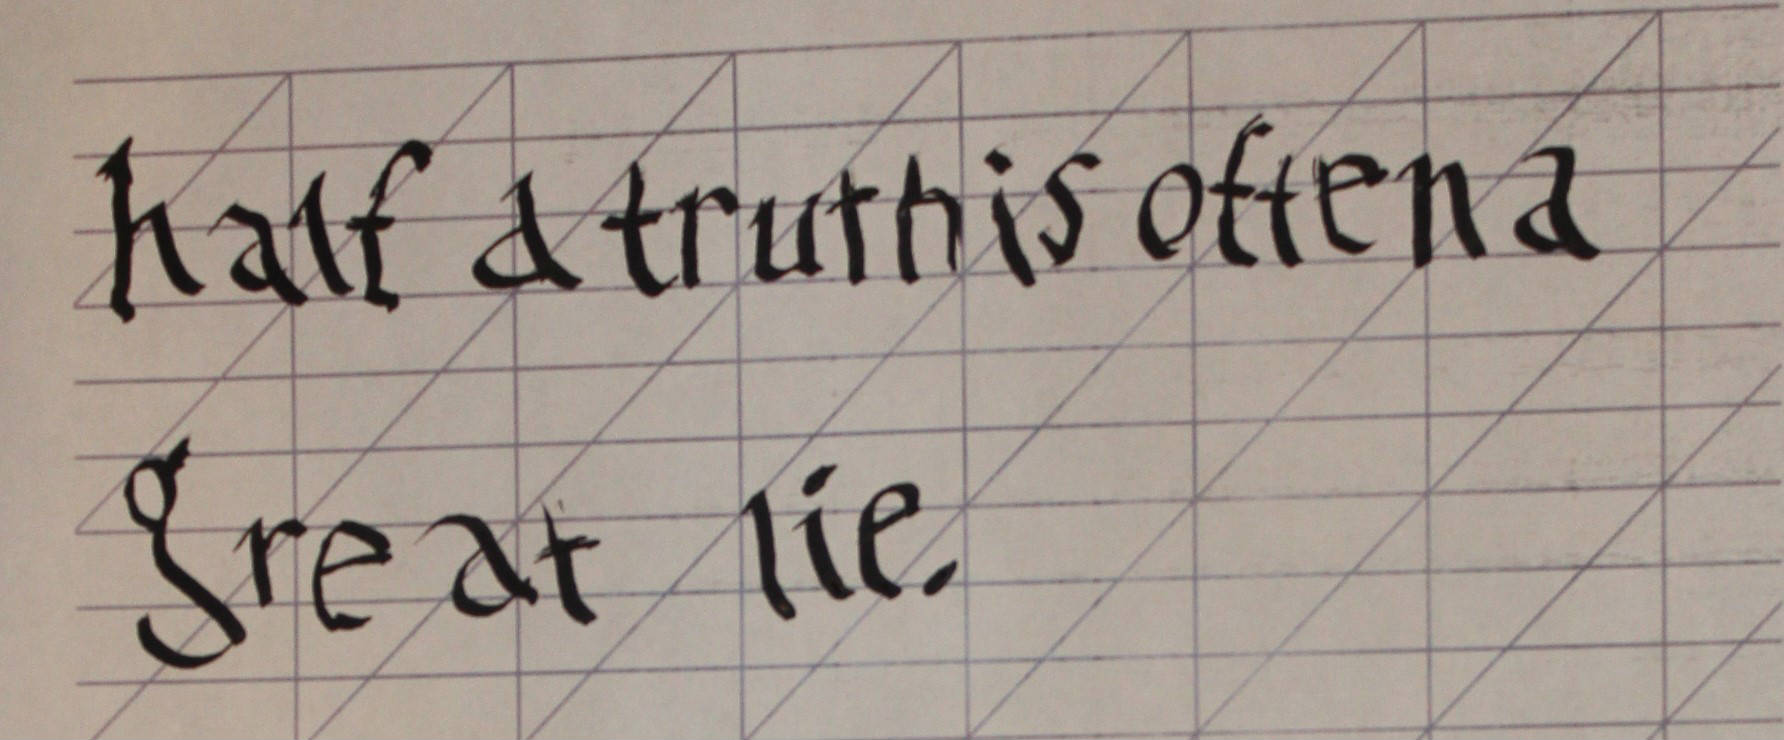 half a truth is often a
great lie.